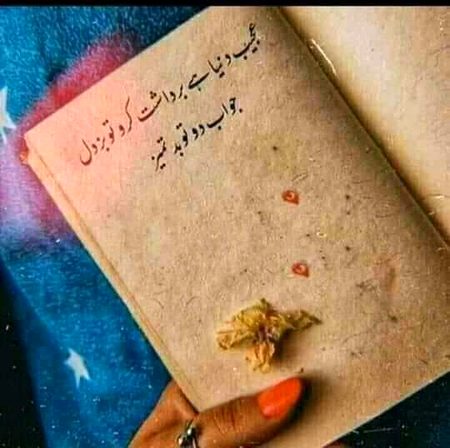 عجیب دنیا ہے برداشت کرو تو بزدل
جواب دو تو بد تمیز